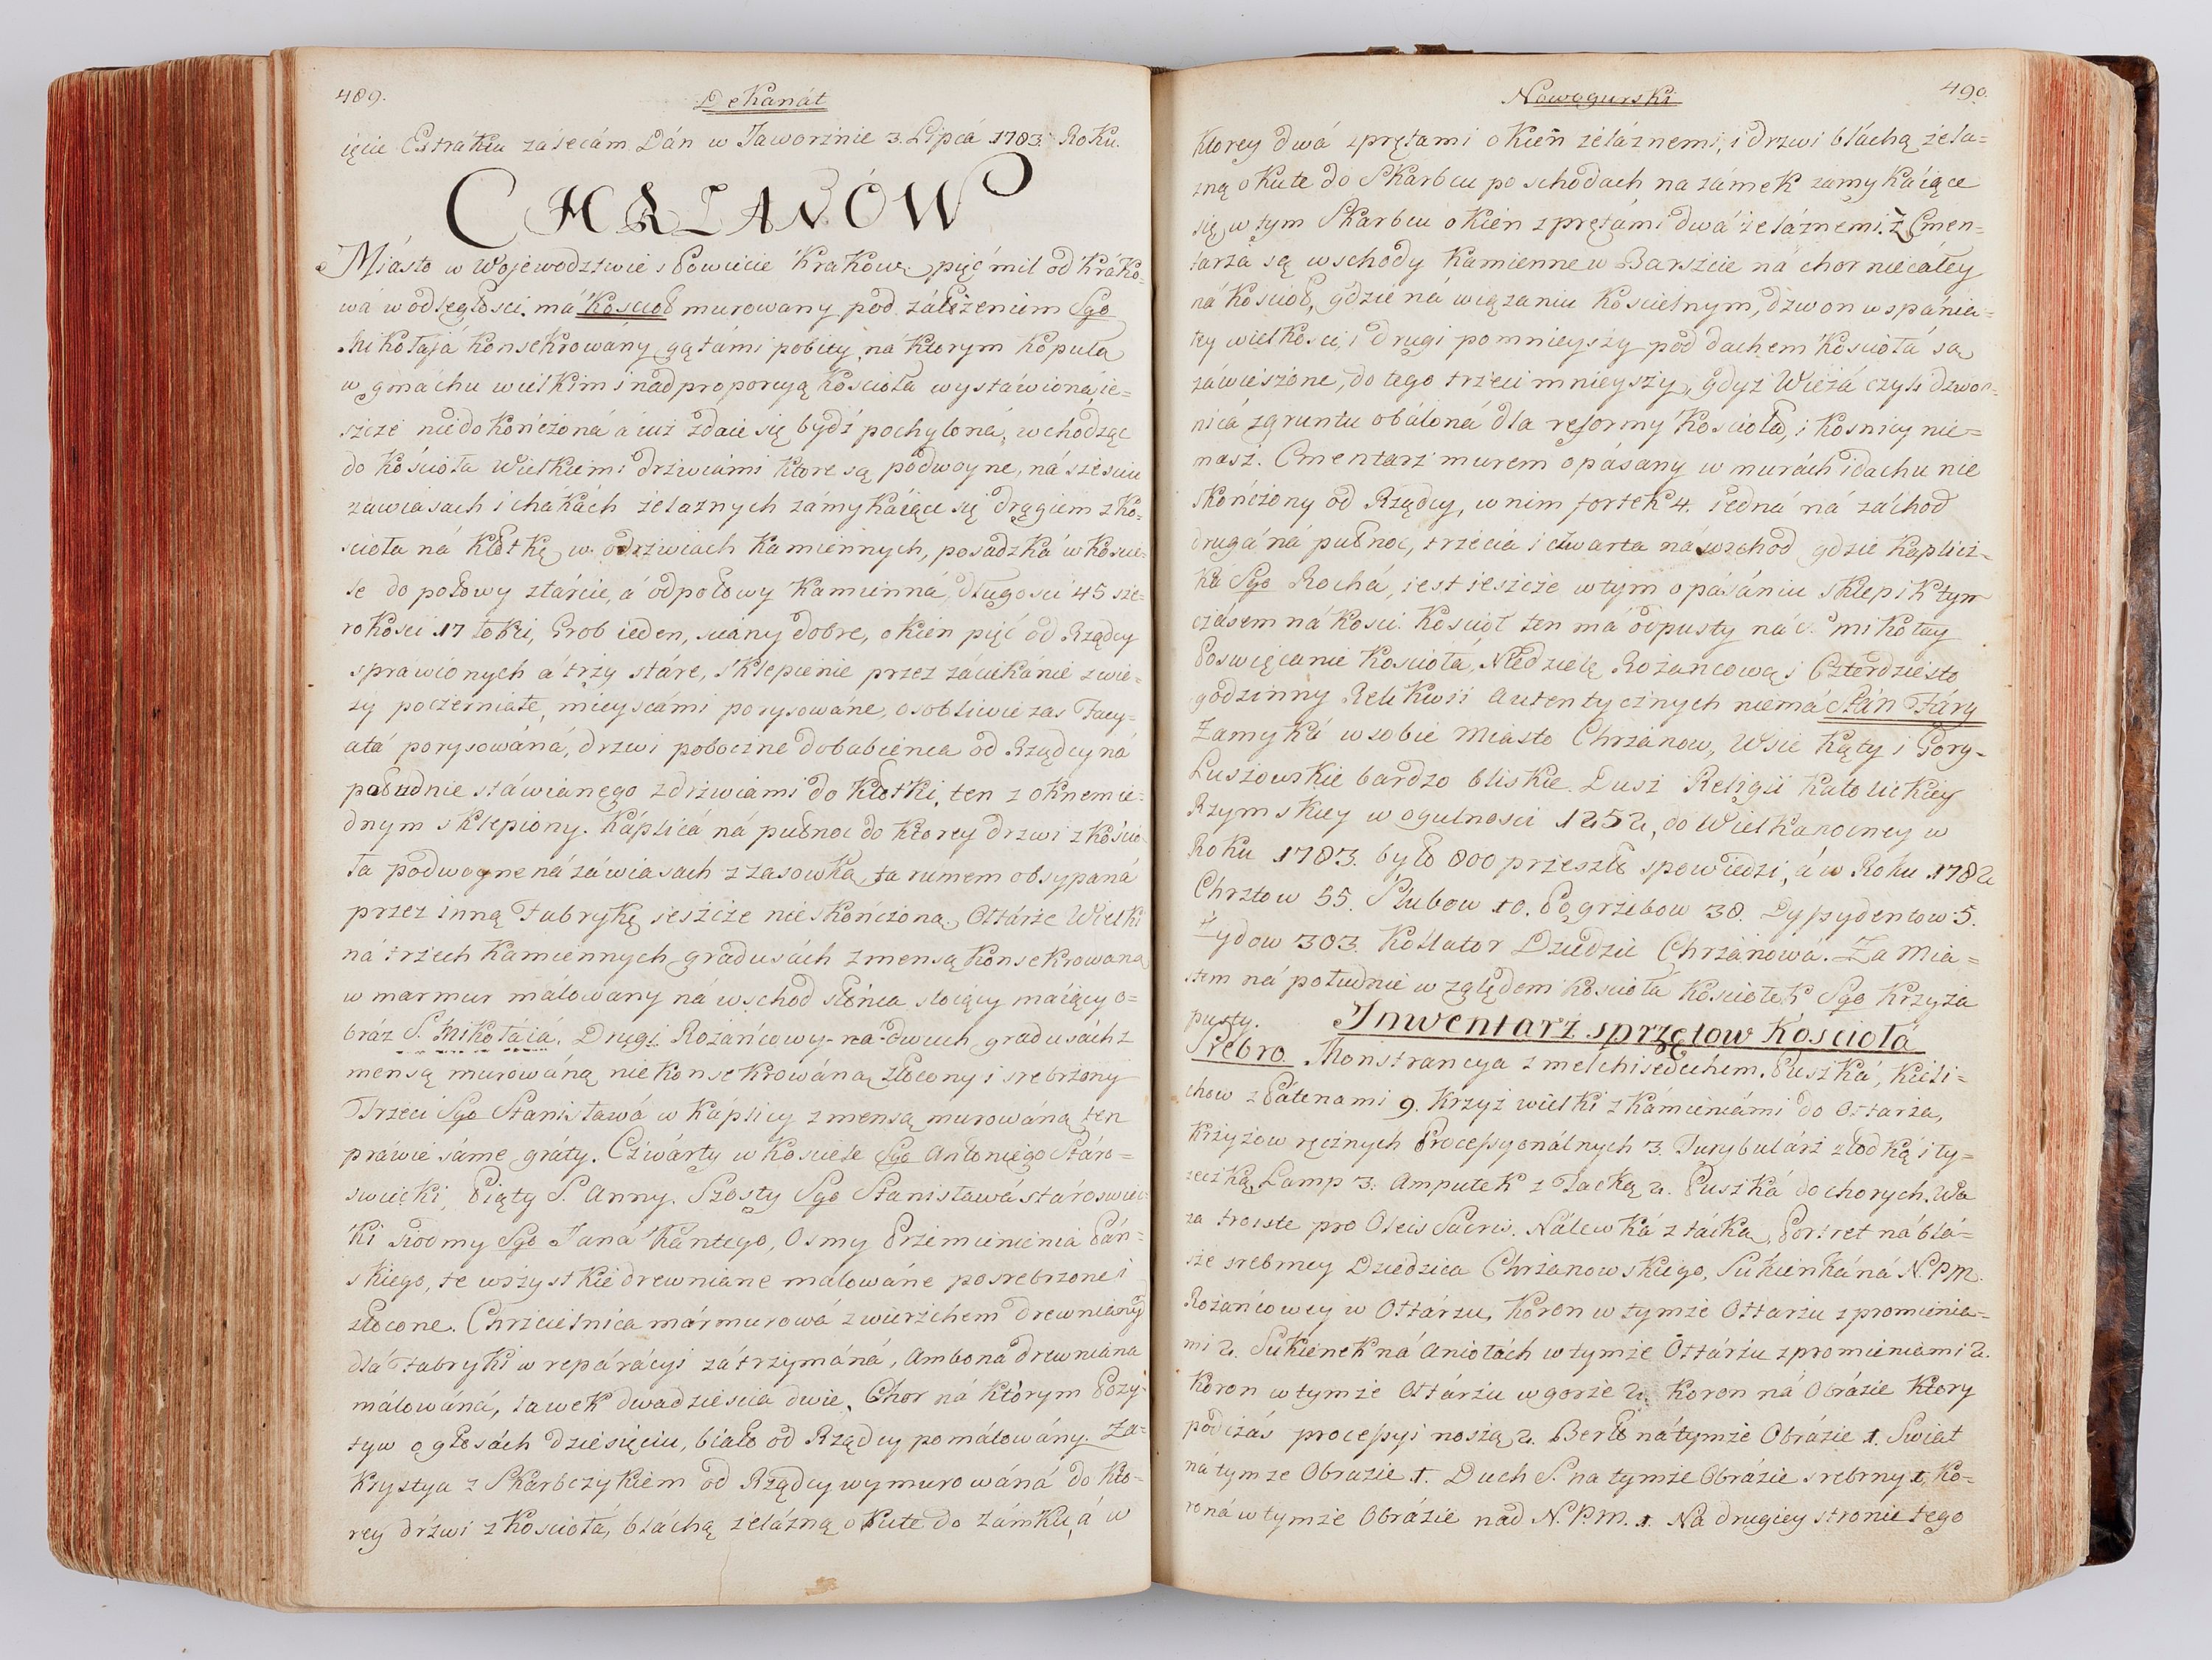 489.
Dekanát
ięcie Extráktu zálecám Dán w Jaworznie 3. Lipcá 1783. Roku.
CHRZANÓW
Miásto w Wojewodztwie i Powiecie Krakow: pięć mil od Kráko=
wá w odległosci, má Kościoł murowany pod záłożeniem Sgo
Mikołajá konsekrowány gątámi pobity ná ktorym kopuła
w gmáchu wielkim i nad proporcyą kościoła wystáwioná ie=
szcze niedokończoná á iuż zdaie się bydź pochyloná, wchodząc
do kościoła Wielkiemi drzwiámi ktore są podwoyne, ná sześciu
záwiasach i chakách żelaznych zámykáiące się drągiem z ko=
ścioła ná kłotkę w odrzwiach kamiennych, posadzká w koście=
le do połowy z tárcic, á od połowy kamienná, długosci 45 sze=
rokosci 17 łokci, Grob ieden, sciány dobre, okien pięć od Rządcy
spráwionych á trzy stáre, sklepienie przez záciekánie z wie=
ży poczerniałe, mieyscámi porysowáne, osobliwie zas Facy=
atá porysowáná, drzwi poboczne do babieńca od Rządcy ná
południe stáwianego z drzwiami do kłotki, ten z oknem ie=
dnym sklepiony. Káplicá ná pułnoc do ktorey drzwi z kościo=
ła podwoyne ná záwiasach z zasowką, ta rumem obsypaná
przez inną Fabrykę ieszcze nieskończoną. Ołtárze Wielki
ná trzech kamiennych gradusách z mensą konsekrowaną
w marmur málowany ná wschod słońca stoiący máiący o=
bráz S. Mikołáiá. Drugi Rożáńcowy ná dwuch gradusách z
mensą murowáną niekonsekrowáną złocony i srebrzony
Trzeci Sgo Stanisławá w káplicy z mensą murowáną ten
práwie sáme gráty. Czwárty w kościele Sgo Antoniego Stáro=
swiecki, Piąty S. Anny. Szosty Sgo Stanisławá stároswiec=
ki Siodmy Sgo Janá Kántego, Osmy Przemienienia Páń=
skiego, te wszystkie drewniane málowáne posrebrzone i
złocone. Chrzcielnica mármurowá z wierzchem drewniány
dlá Fabryki w repárácyi zátrzymáná, Amboná drewniána
málowáná, ławek dwadzieścia dwie. Chor ná ktorym Pozy=
tyw o głosách dziesięciu, biało od Rządcy pomálowány. Za=
krystya z Skarbczykiem od Rządcy wymurowáná do kto=
rey drzwi z kościołá, bláchą żeláźną okute do zámku, á w
Nowogurski
490.
ktorey dwá z prętami okien żeláznemi, i drzwi bláchą żela=
zną okute do Skarbcu po schodach na zámek zamykaiące
się w tym Skarbcu okien z prętámi dwá żeláznemi. Z Cmen=
tarza są wschody kamienne w Barszcie ná chor niecáłey
ná kościoł, gdzie ná wiązaniu kościelnym, dzwon wspánia=
łey wielkości, i drugi pomnieyszy pod dachem kościołá są
záwieszone, do tego trzeci mnieyszy, gdyż Wieżá czyli dzwon=
nicá z gruntu obáloná dla reformy kościoła, i kosnicy nie=
masz. Cmentarz murem opásany w murách i dachu nie
skończony od Rządcy, w nim fortek 4. iedná ná záchod
drugá ná pułnoc, trzecia i czwarta ná wschod gdzie kaplicz=
ka Sgo Rochá, iest ieszcze w tym opásániu sklepik tym
czásem ná kości. Kościoł ten má odpusty ná S. Mikołay
Poswięcanie kościołá, Niedzielę Rożańcową i Czterdziesto
godzinny Relikwii autentycznych niemá. Stán Fáry
Zamyká w sobie Miasto Chrzánow, Wsie Kąty i Gory=
Luszowskie bardzo bliskie. Dusz Religii Katolickiey
Rzymskiey w ogulnosci 1252, do Wielkanocney w
Roku 1783. było 800 przeszło spowiedzi, á w Roku 1782
Chrztow 55. Slubow 10. Pogrzebow 38. Dyssydentow 5.
Zydow 303. Kollator Dziedzic Chrzánowá. Za Mia=
stem ná południe względem kościoła Kościołek Sgo Krzyża
pusty.
Jnwentarz sprzętow Kosciołá
Srebro. Monstrancya z melchisedechem. Puszká, kieli=
chow z Pátenami 9. Krzyż wielki z kámieniámi do Ołtarza,
Krzyżow ręcznych Processyonálnych 3. Turybularz z łodką i ły=
żeczką, Lamp 3. Ampułek z Tacką 2. Puszká do chorych. Wa
za troiste pro Oleis Sacris. Nálewká z tácką, Portret ná blá=
sze srebrney Dziedzica Chrzanowskiego, Sukienká ná N.P.M.
Rożańcowey w Ołtárzu, koron w tymże Ołtarzu z promienia=
mi 2. Sukienek ná Aniołách w tymże Ołtárzu z promieniami 2.
Koron w tymże Ołtárzu w gorze 2. Koron ná Obrázie ktory
podczás processyi noszą 2. Berło ná tymże Obrázie 1. Swiat
ná tymże Obrazie 1. Duch S. na tymże Obrázie srebrny 1. Ko=
roná w tymże Obrázie nad N.P.M. 1. Na drugiey stronie tego